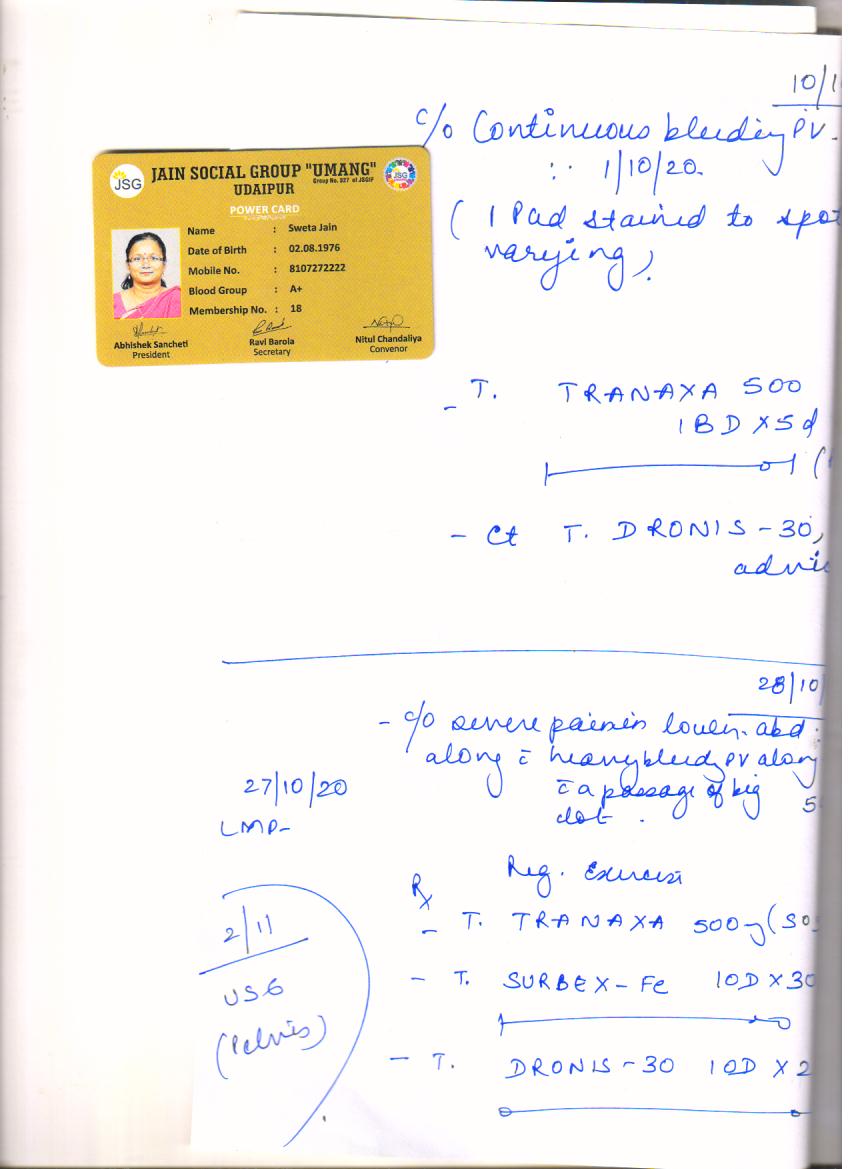 10/1
c/o Continuous bleeding PV.
∵ 1/10/20.
( 1 Pad stained to spot
varying).
JSG
JAIN SOCIAL GROUP "UMANG"
Group No. 327 of JSGIF
UDAIPUR
POWER CARD
Name : Sweta Jain
Date of Birth : 02.08.1976
Mobile No. : 8107272222
Blood Group : A+
Membership No. : 18
Abhishek Sancheti
President
Ravi Barola
Secretary
Nitul Chandaliya
Convenor
- T. TRANAXA 500
1 BD X 5d
- Ct T. DRONIS-30,
advi
28/10/
- c/o severe pain in lower abd.
along c̄ heavy bleedg PV along
c̄ a passage of big
clot.
27/10/20
LMP-
Reg. Exercise
Rx
- T. TRANAXA 500mg (SOS
- T. SURBEX-Fe 1OD X 30
- T. DRONIS-30 1OD X 2
2/11
USG
(Pelvis)